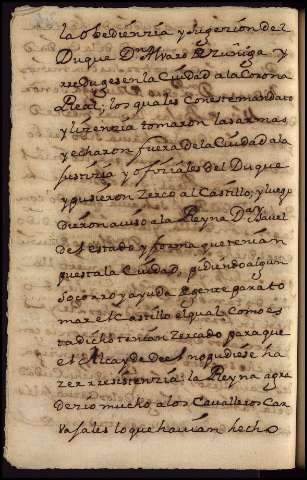 la obedienzia y sugezion del
Duque Dn Alvaro de Zuñiga y
redugesen la Ciudad a la Corona
Real; los quales con este mandato
y lizenzia tomaron las armas
y echaron fuera de la Ciudad a la
justizia y ofiziales del Duque
y pusieron Zerco al Castillo, y luego
dieron aviso a la Reyna Da Ysavel
del estado y forma que tenian
puesta la Ciudad, pidiendo algun
socorro y ayuda de gente para to
mar el Castillo el qual como es
ta dicho tenian Zercado para que
el Alcayde de el no pudiese ha
zer resistenzia la Reyna agra
dezio mucho a los Cavalleros Car
vajales lo que havian hecho